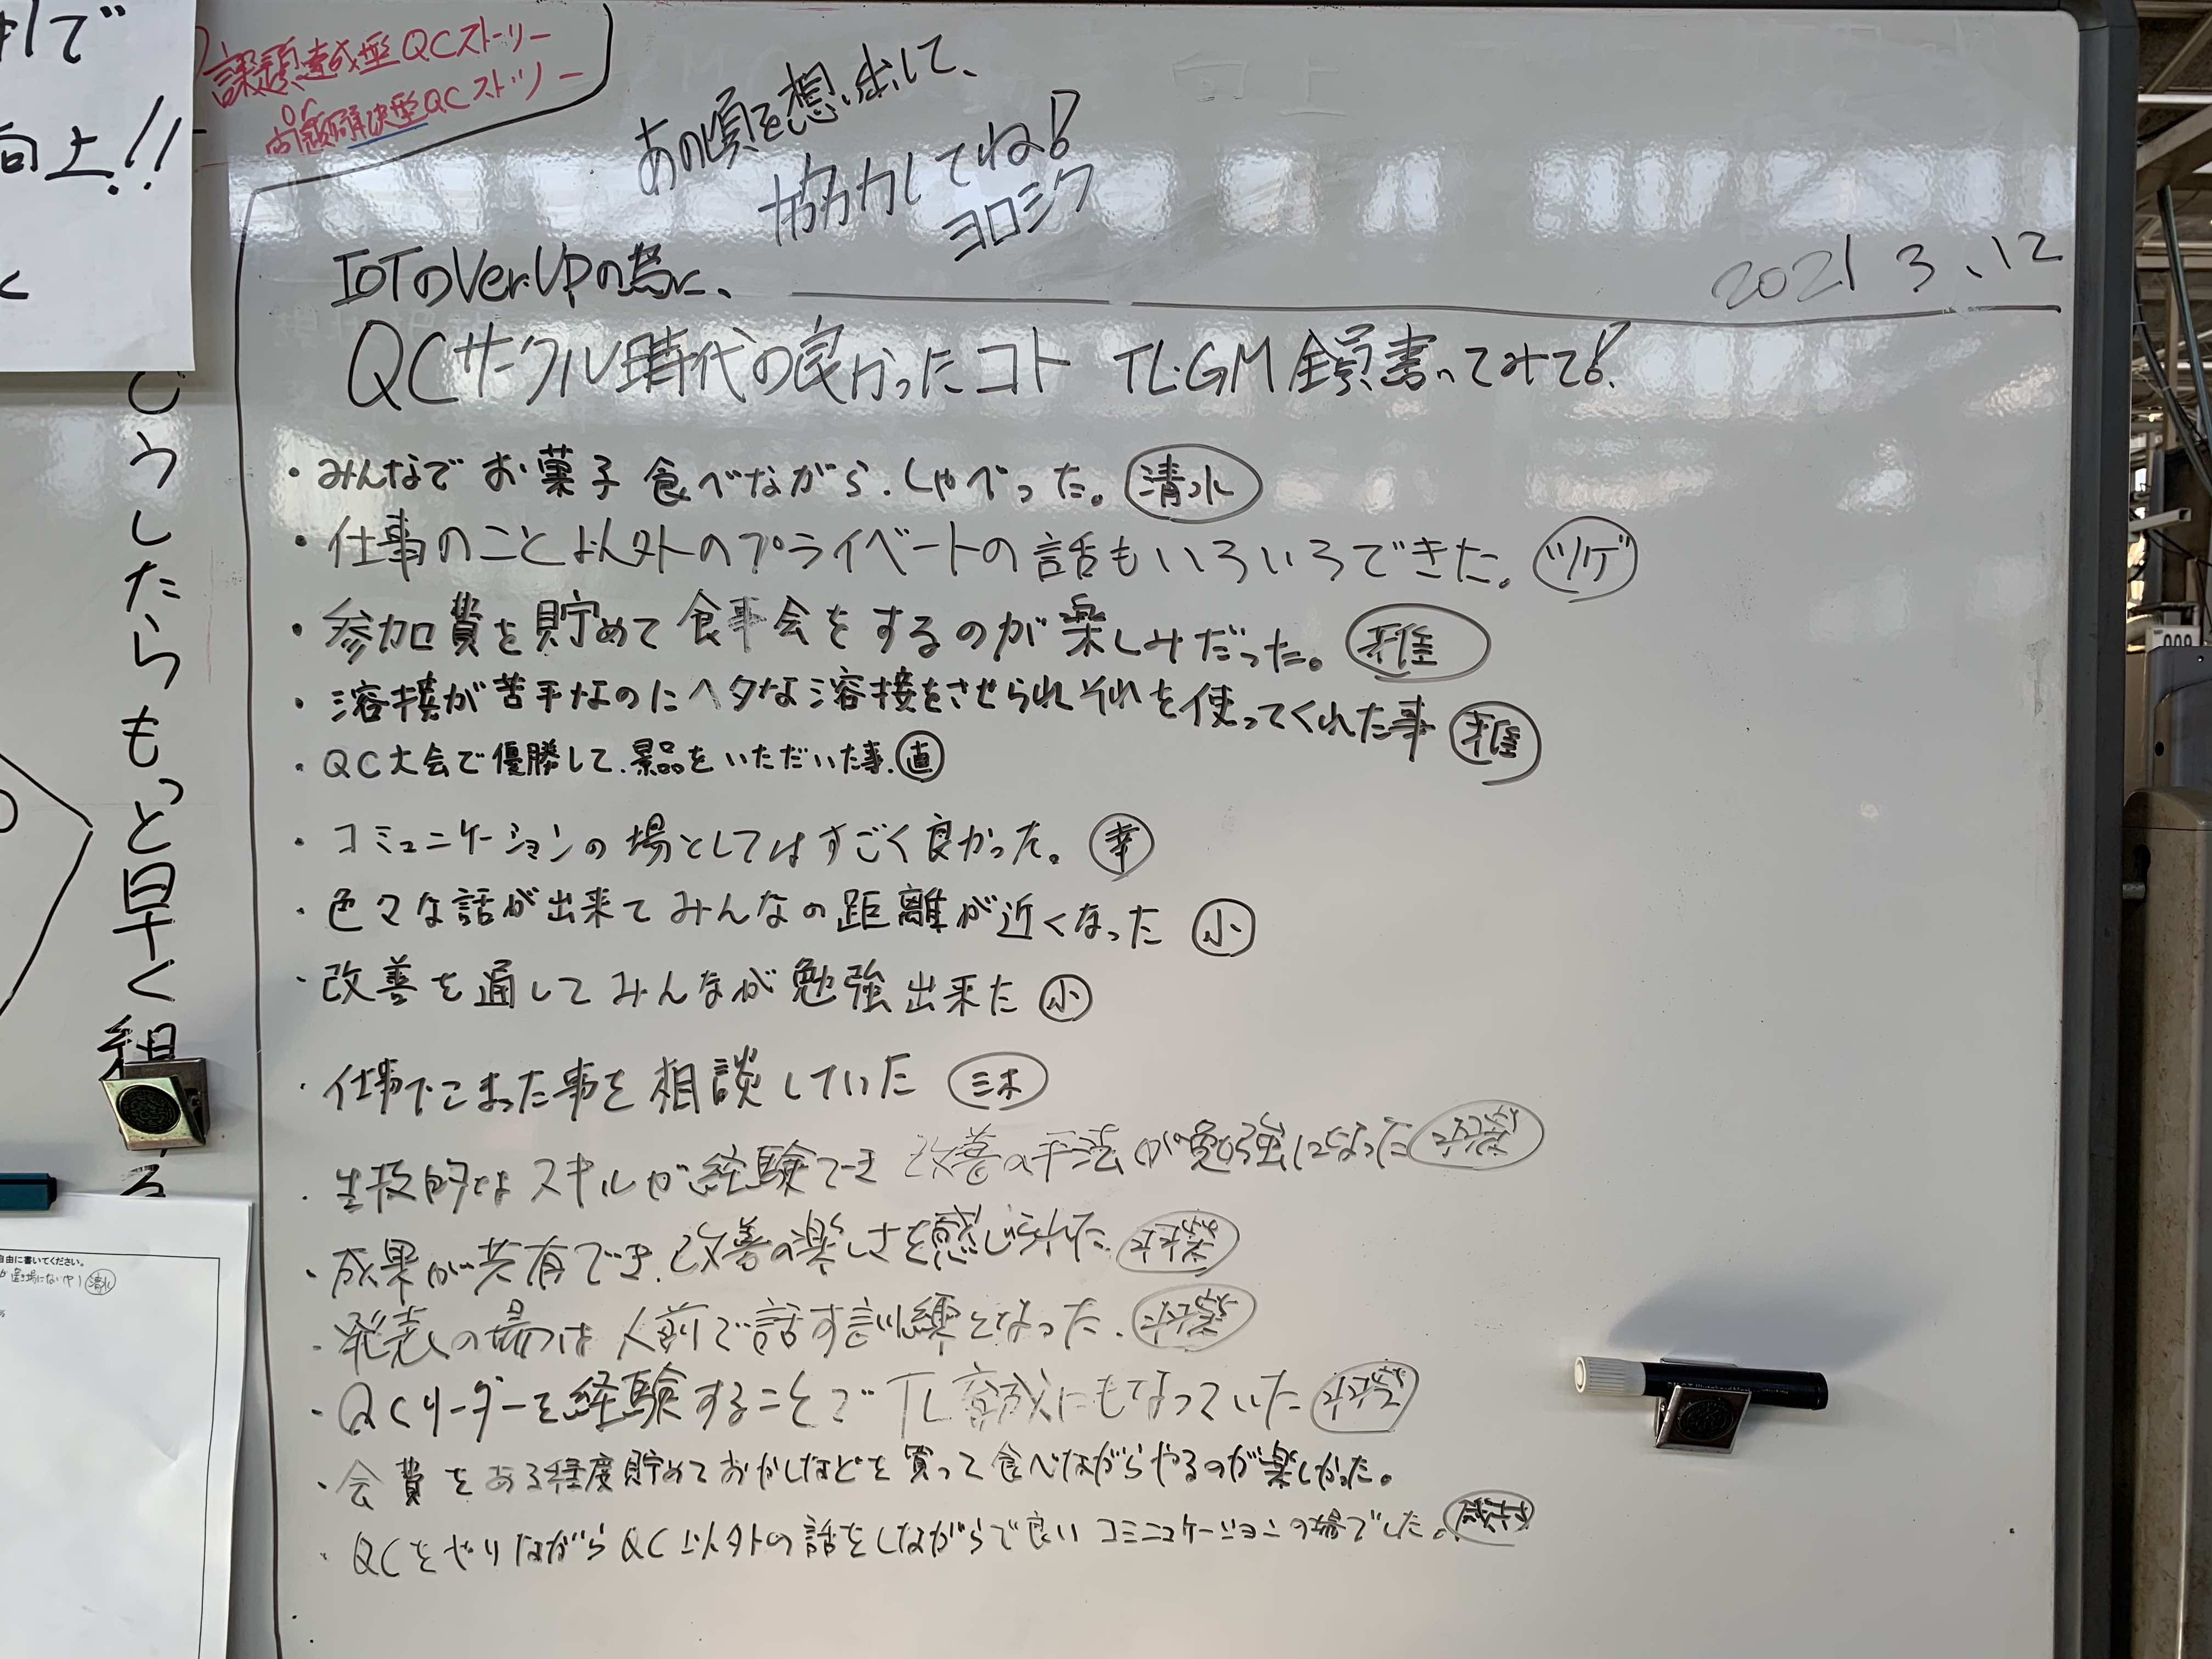 課題達成型QCストーリー
問題解決型QCストーリー
向上!!
どうしたらもっと早く
あの頃を想い出して、
協力してね!
ヨロシク
2021 3.12
IoTのVer.UPの為に、
QCサークル時代の良かったコト TL・GM全員書いてみて!
・みんなでお菓子食べながら、しゃべった。 清水
・仕事のこと以外のプライベートの話もいろいろできた。 ツゲ
・参加費を貯めて食事会をするのが楽しみだった。
・溶接が苦手なのにヘタな溶接をさせられそれを使ってくれた事
・QC大会で優勝して、景品をいただいた事。 直
・コミュニケーションの場としてはすごく良かった。 幸
・色々な話が出来てみんなの距離が近くなった 小
・改善を通してみんなが勉強出来た 小
・仕事でこまった事を相談していた 三木
・生技的なスキルが経験でき改善の手法が勉強になった
・成果が共有でき、改善の楽しさを感じられた、
・発表の場は人前で話す訓練となった、
・QCリーダーを経験することでTL育成にもなっていた
・会費をある程度貯めておかしなどを買って食べながらやるのが楽しかった。
・QCをやりながらQC以外の話をしながらで良いコミニュケーションの場でした。
自由に書いてください。
清水